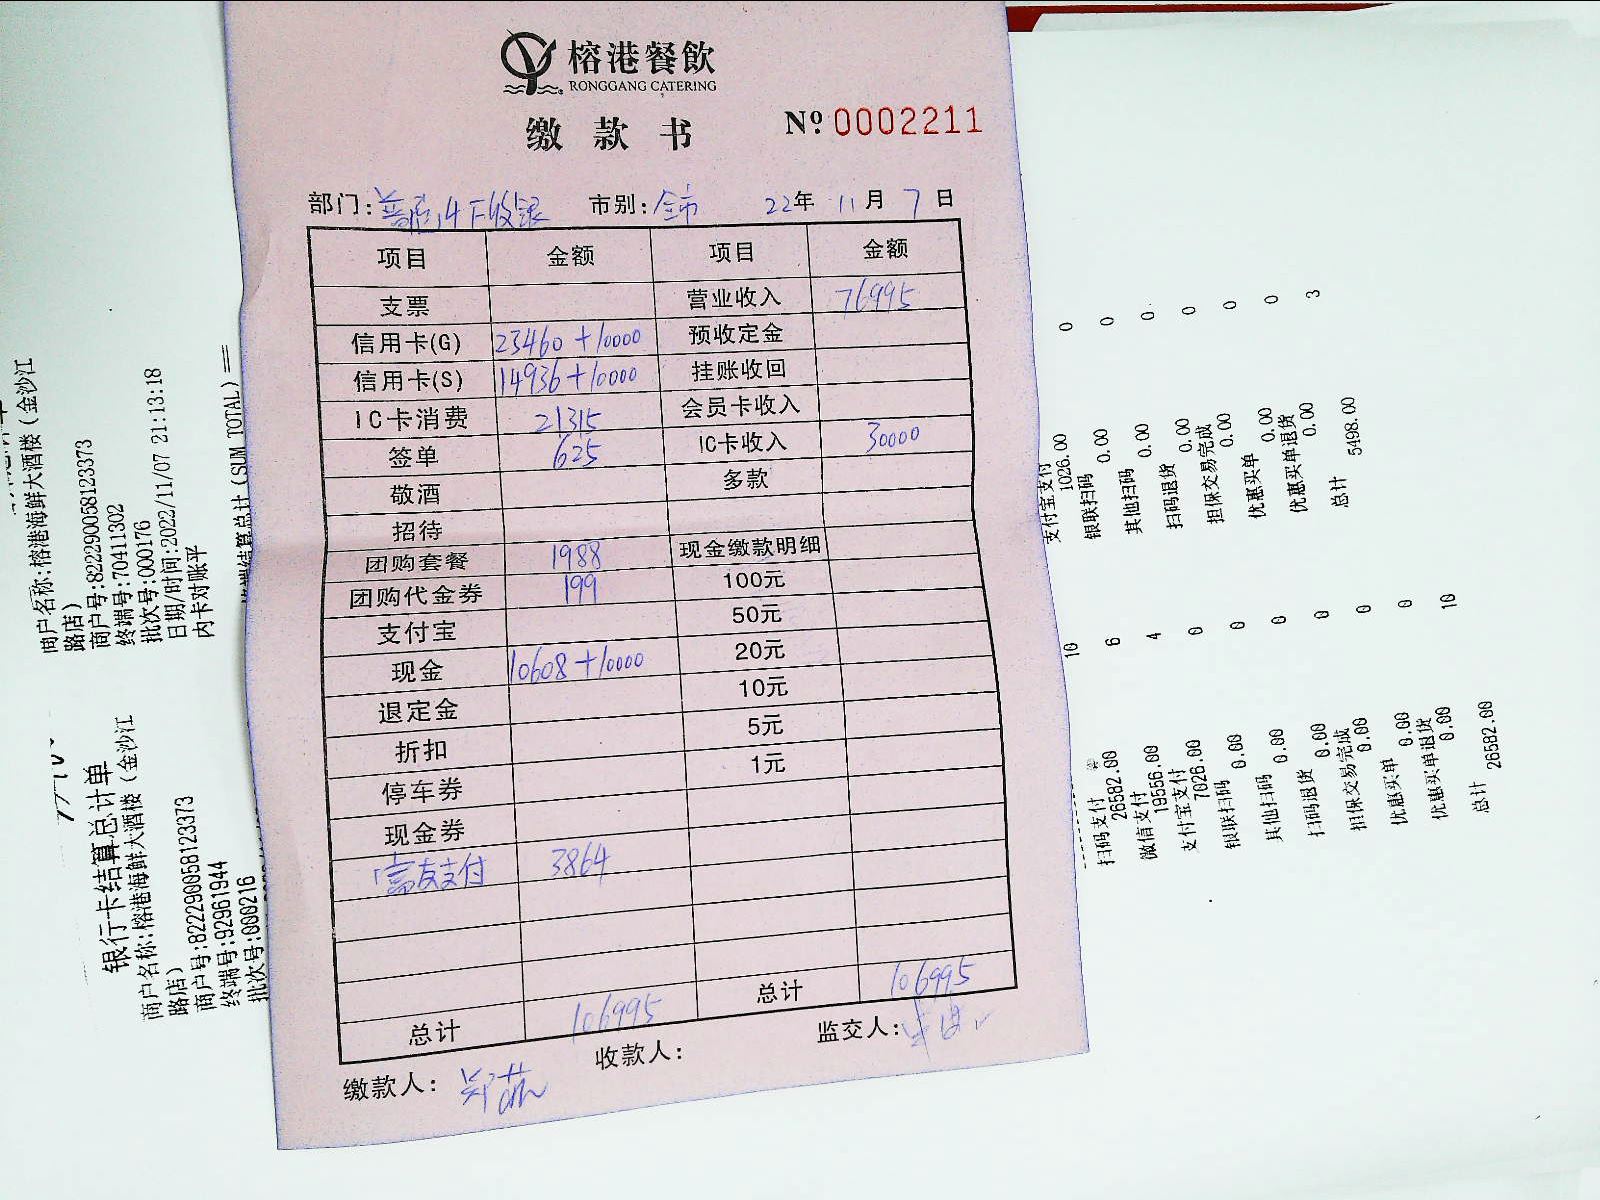 榕港餐飲
RONGGANG CATERING
缴款书
Nº 0002211
部门:普陀店4F收银 市别:全市 22年 11月 7日
项目 金额 项目 金额
支票 营业收入 76995
信用卡(G) 23460+10000 预收定金
信用卡(S) 14936+10000 挂账收回
IC卡消费 21315 会员卡收入
签单 625 IC卡收入 30000
敬酒 多款
招待
团购套餐 1988 现金缴款明细
团购代金券 199 100元
支付宝 50元
现金 10608+10000 20元
退定金 10元
折扣 5元
停车券 1元
现金券
富友支付 3864
总计 106995 总计 106995
缴款人: 收款人: 监交人:
商户名称:榕港海鲜大酒楼(金沙江
路店)
商户号:822290058123373
终端号:70411302
批次号:000176
日期/时间:2022/11/07 21:13:18
内卡对账平
终端结算总计(SUM TOTAL)==
银行卡结算总计单
商户名称:榕港海鲜大酒楼(金沙江
路店)
商户号:822290058123373
终端号:92961944
批次号:000216
支付宝支付 0
1026.00
银联扫码 0
0.00
其他扫码 0
0.00
扫码退货 0
0.00
担保交易完成 0
0.00
优惠买单 0
0.00
优惠买单退货 3
0.00
总计
5498.00
扫码支付 10
26582.00
微信支付 6
19556.00
支付宝支付 4
7026.00
银联扫码 0
0.00
其他扫码 0
0.00
扫码退货 0
0.00
担保交易完成 0
0.00
优惠买单 0
0.00
优惠买单退货 0
0.00
总计 10
26582.00